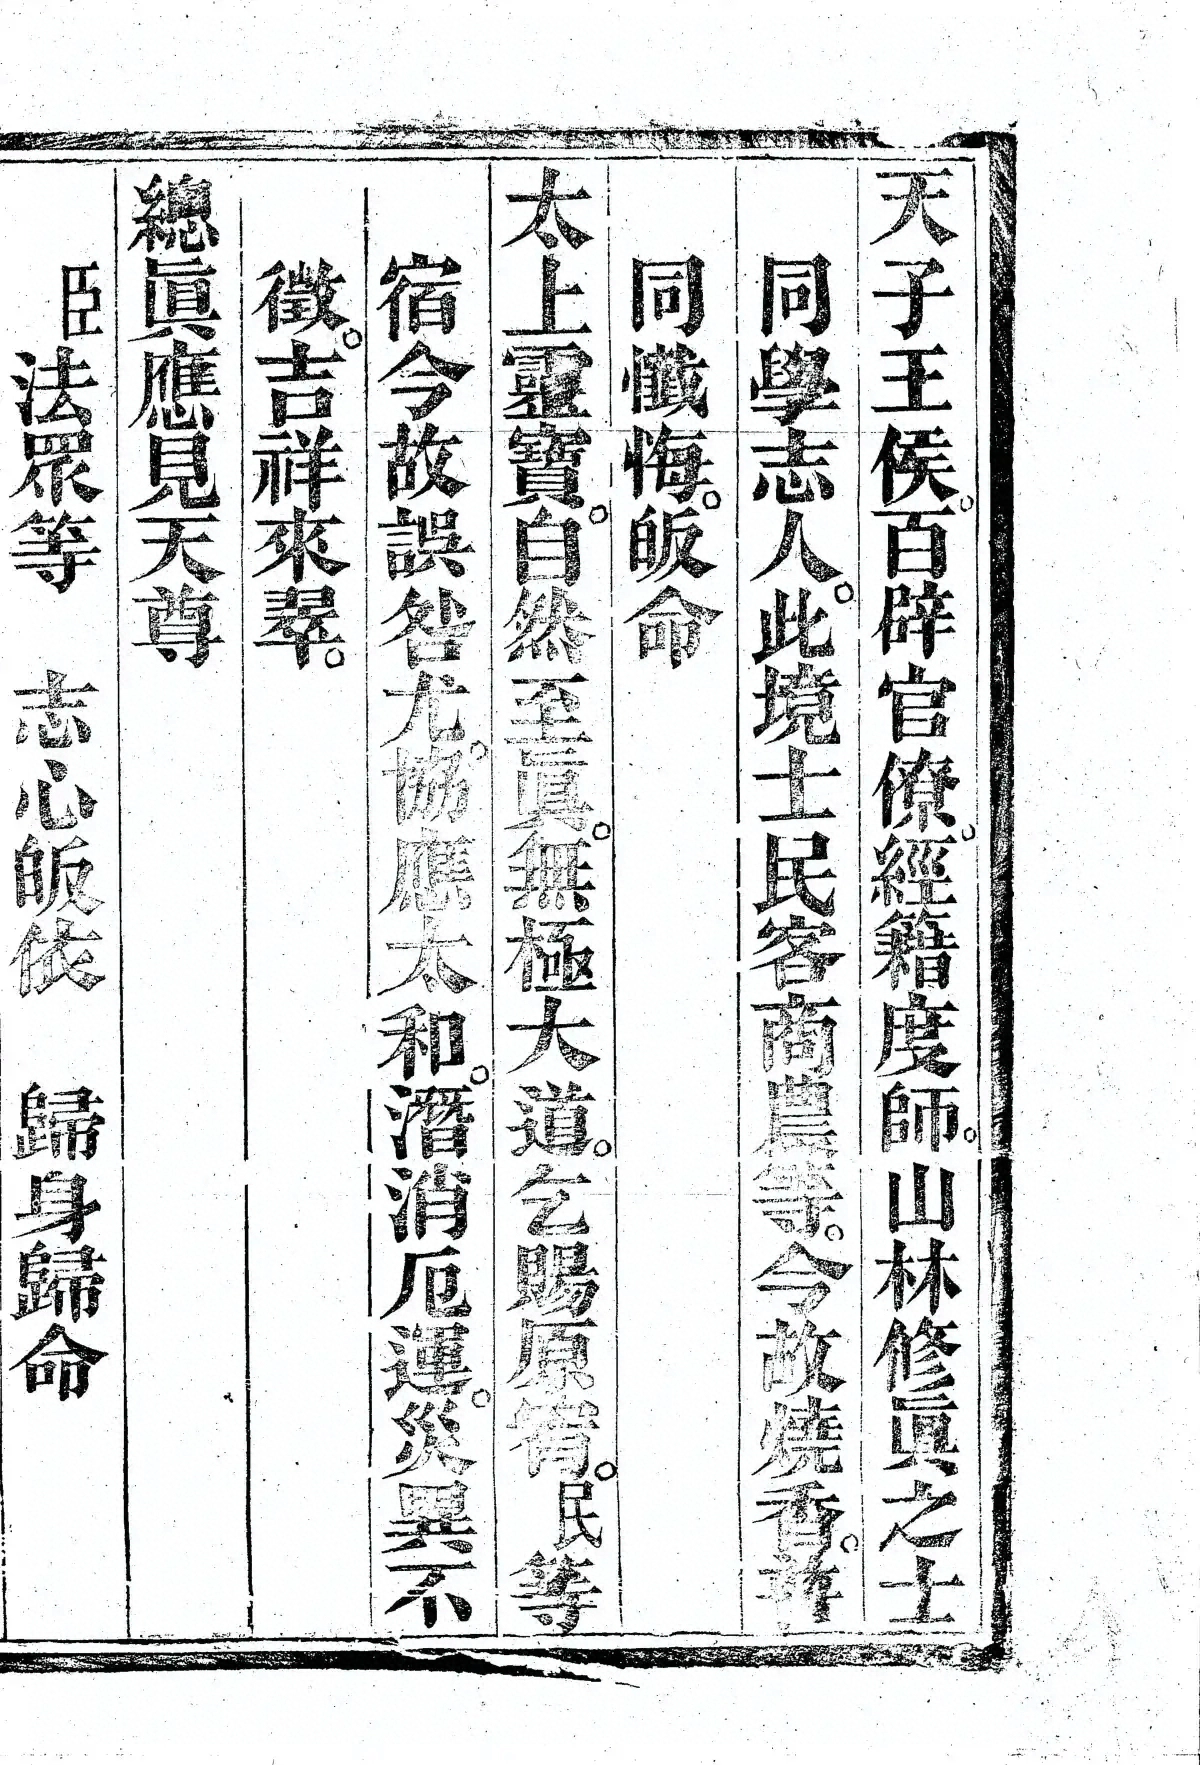 天子王侯。百辟官僚。經籍度師。山林修眞之士
同學志人。此境士民客商農等。今故燒香。
同懺悔。皈命
太上靈寶。自然至眞。無極大道。乞賜原宥。民等
宿今故誤咎尤。協應太和。潛消厄運。災異不
徵。吉祥來翠。
總眞應見天尊
臣法眾等　志心皈依　歸身歸命